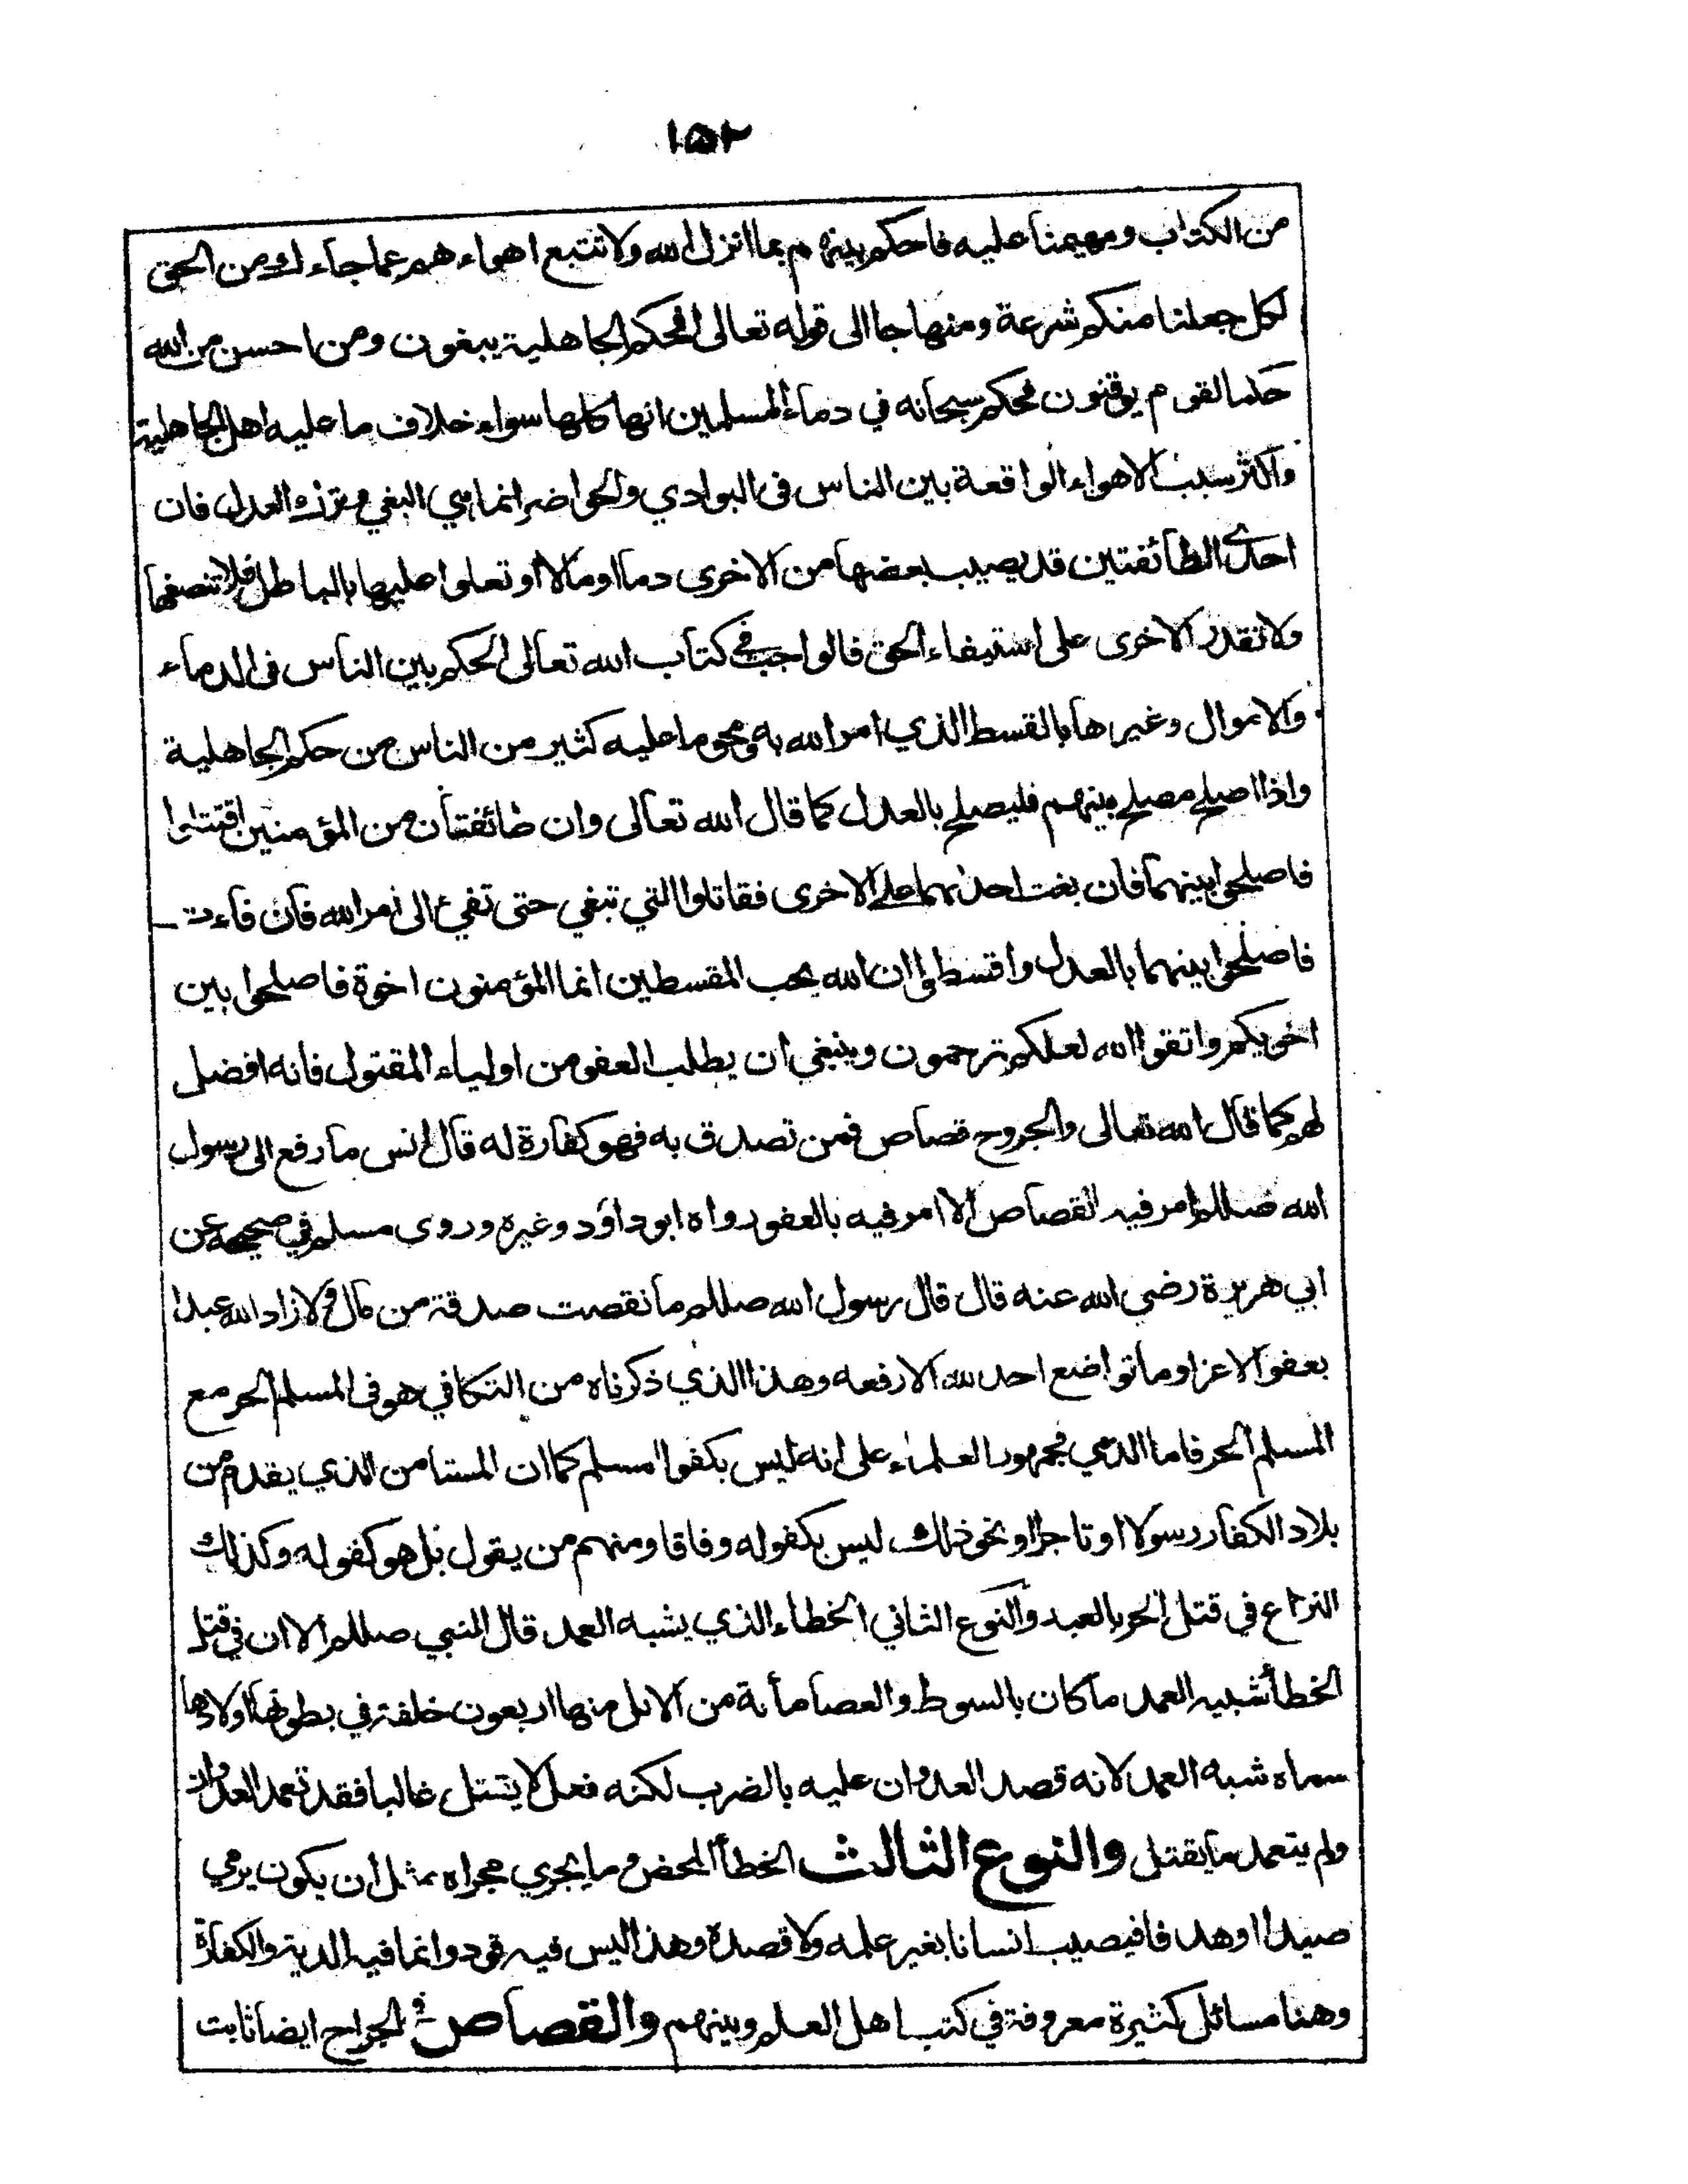 ١٥٢
من الكتاب ومهيمنا عليه فاحكم بينهم بما انزل الله ولا تتبع اهواءهم عما جاءك من الحق
لكل جعلنا منكم شرعة ومنهاجا الى قوله تعالى افحكم الجاهلية يبغون ومن احسن من الله
حكما لقوم يوقنون فحكم سبحانه في دماء المسلمين انها كلها سواء خلاف ما عليه اهل الجاهلية
واكثر سبب الاهواء الواقعة بين الناس في البوادي والحواضر انما هي البغي وترك العدل فان
احدى الطائفتين قد يصيب بعضها من الاخرى دما او مالا او تعلوا عليها بالباطل فلا تنصفها
ولا تقدر الاخرى على استيفاء الحق فالواجب في كتاب الله تعالى الحكم بين الناس في الدماء
والاموال وغيرها بالقسط الذي امر الله به ومحو ما عليه كثير من الناس من حكم الجاهلية
واذا اصلح مصلح بينهم فليصلح بالعدل كما قال الله تعالى وان طائفتان من المؤمنين اقتتلوا
فاصلحوا بينهما فان بغت احدهما على الاخرى فقاتلوا التي تبغي حتى تفيئ الى امر الله فان فاءت
فاصلحوا بينهما بالعدل واقسطوا ان الله يحب المقسطين انما المؤمنون اخوة فاصلحوا بين
اخويكم واتقوا الله لعلكم ترحمون وينبغي ان يطلب العفو من اولياء المقتول فانه افضل
لهم كما قال الله تعالى والجروح قصاص فمن تصدق به فهو كفارة له قال انس ما رفع الى رسول
الله صللم امر فيه القصاص الا امر فيه بالعفو رواه ابو داؤد وغيره وروى مسلم في صحيحه عن
ابي هريرة رضي الله عنه قال قال رسول الله صللم ما نقصت صدقة من مال ولا زاد الله عبدا
بعفو الا عزا وما تواضع احد لله الا رفعه وهذا الذي ذكرناه من التكافي هو في المسلم الحر مع
المسلم الحر فاما الذمي فجمهور العلماء على انه ليس بكفو المسلم كما ان المستامن الذي يقدم من
بلاد الكفار رسولا او تاجرا ونحو ذلك ليس بكفو له وفاقا ومنهم من يقول بل هو كفو له وكذلك
النزاع في قتل الحر بالعبد والنوع الثاني الخطاء الذي يشبه العمد قال النبي صللم الا ان في قتل
الخطأ شبيه العمد ما كان بالسوط والعصا مأة من الابل منها اربعون خلفة في بطونها اولادها
سماه شبه العمد لانه قصد العدوان عليه بالضرب لكنه فعل لا يقتل غالبا فقد تعمد العدوان
ولم يتعمد ما يقتل والنوع الثالث الخطأ المحض وما يجري مجراه مثل ان يكون يرمي
صيدا او هدفا فيصيب انسانا بغير علمه ولا قصده وهذا ليس فيه قود وانما فيه الدية والكفارة
وهنا مسائل كثيرة معروفة في كتب اهل العلم وبينهم والقصاص في الجراح ايضا ثابت